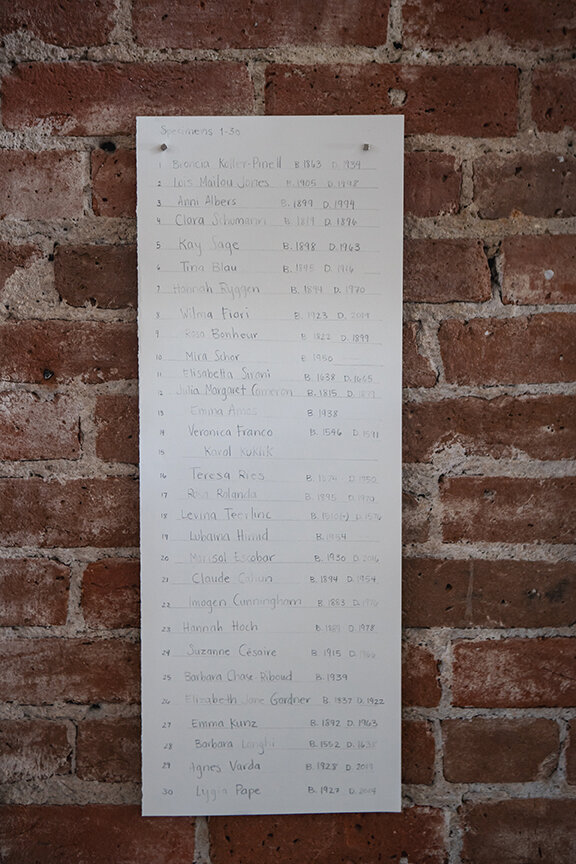 Specimens 1-30
1 Broncia Koller-Pinell B. 1863 D. 1934
2 Lois Mailou Jones B. 1905 D. 1998
3 Anni Albers B. 1899 D. 1994
4 Clara Schumann B. 1819 D. 1896
5 Kay Sage B. 1898 D. 1963
6 Tina Blau B. 1845 D. 1916
7 Hannah Ryggen B. 1894 D. 1970
8 Wilma Fiori B. 1923 D. 2019
9 Rosa Bonheur B. 1822 D. 1899
10 Mira Schor B. 1950
11 Elisabetta Sirani B. 1638 D. 1665
12 Julia Margaret Cameron B. 1815 D.
13 Emma Amos B. 1938
14 Veronica Franco B. 1546 D. 1591
15 Karol Kuklik
16 Teresa Ries B. 1874 D. 1950
17 Rosa Rolanda B. 1895 D. 1970
18 Levina Teerlinc B. D. 1576
19 Lubaina Himid B. 1954
20 Marisol Escobar B. 1930 D. 2016
21 Claude Cahun B. 1894 D. 1954
22 Imogen Cunningham B. 1883 D. 1976
23 Hannah Hoch B. 1889 D. 1978
24 Suzanne Césaire B. 1915 D. 1966
25 Barbara Chase Riboud B. 1939
26 Elizabeth Jane Gardner B. 1837 D. 1922
27 Emma Kunz B. 1892 D. 1963
28 Barbara Longhi B. 1552 D. 1638
29 Agnes Varda B. 1928 D. 2019
30 Lygia Pape B. 1927 D. 2004